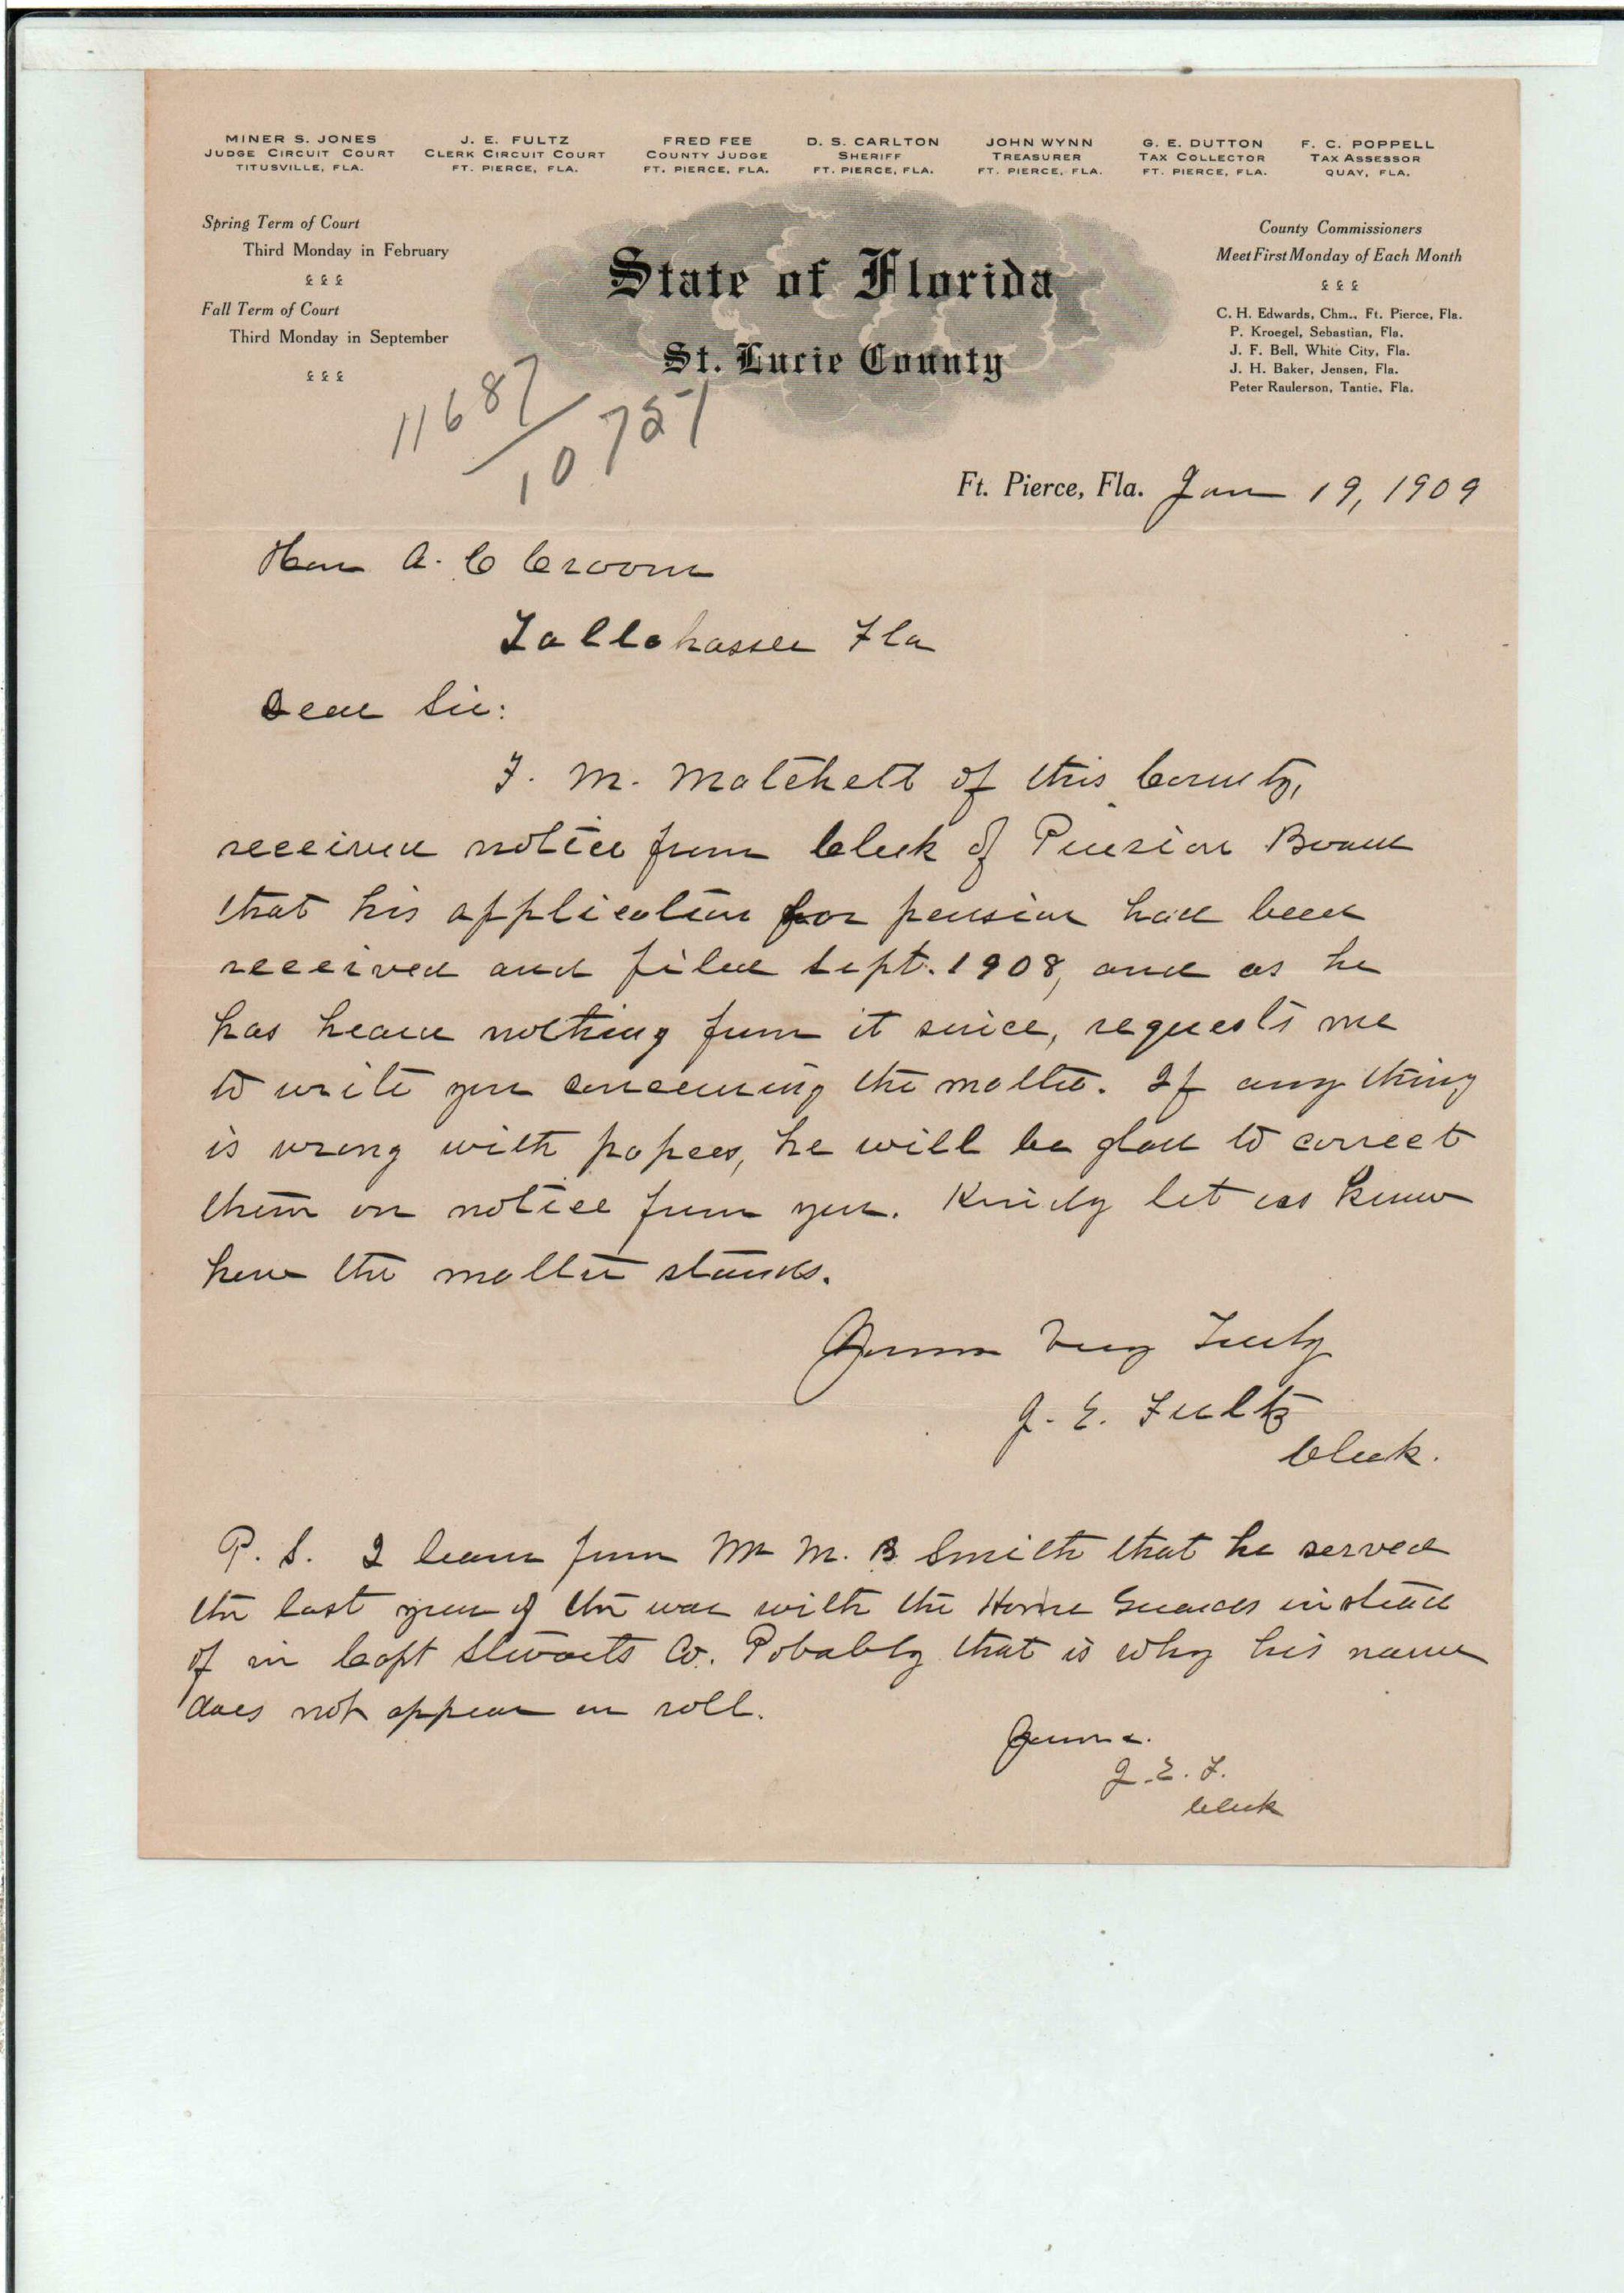 MINER S. JONES
JUDGE CIRCUIT COURT
TITUSVILLE, FLA.
J. E. FULTZ
CLERK CIRCUIT COURT
FT. PIERCE, FLA.
FRED FEE
COUNTY JUDGE
FT. PIERCE, FLA.
D. S. CARLTON
SHERIFF
FT. PIERCE, FLA.
JOHN WYNN
TREASURER
FT. PIERCE, FLA.
G. E. DUTTON
TAX COLLECTOR
FT. PIERCE, FLA.
F. C. POPPELL
TAX ASSESSOR
QUAY, FLA.
Spring Term of Court
Third Monday in February
Fall Term of Court
Third Monday in September
State of Florida
St. Lucie County
County Commissioners
Meet First Monday of Each Month
C. H. Edwards, Chm., Ft. Pierce, Fla.
P. Kroegel, Sebastian, Fla.
J. F. Bell, White City, Fla.
J. H. Baker, Jensen, Fla.
Peter Raulerson, Tantie, Fla.
11687/10751
Ft. Pierce, Fla. Jan 19, 1909
Hon A. C Croom
Tallahassee Fla
Dear Sir:
F. M. Matchett of this County,
received notice from Clerk of Pension Board
that his application for pension had been
received and filed Sept. 1908, and as he
has heard nothing from it since, requests me
to write you concerning the matter. If any thing
is wrong with papers, he will be glad to correct
them on notice from you. Kindly let us know
how the matter stands.
Yours Very Truly
J. E. Fultz
Clerk.
P. S. I learn from Mr M. B Smith that he served
the last year of the war with the Home Guards instead
of in Capt Stwarts Co. Pobably that is why his name
does not appear on roll.
Yours.
J. E. F.
Clerk